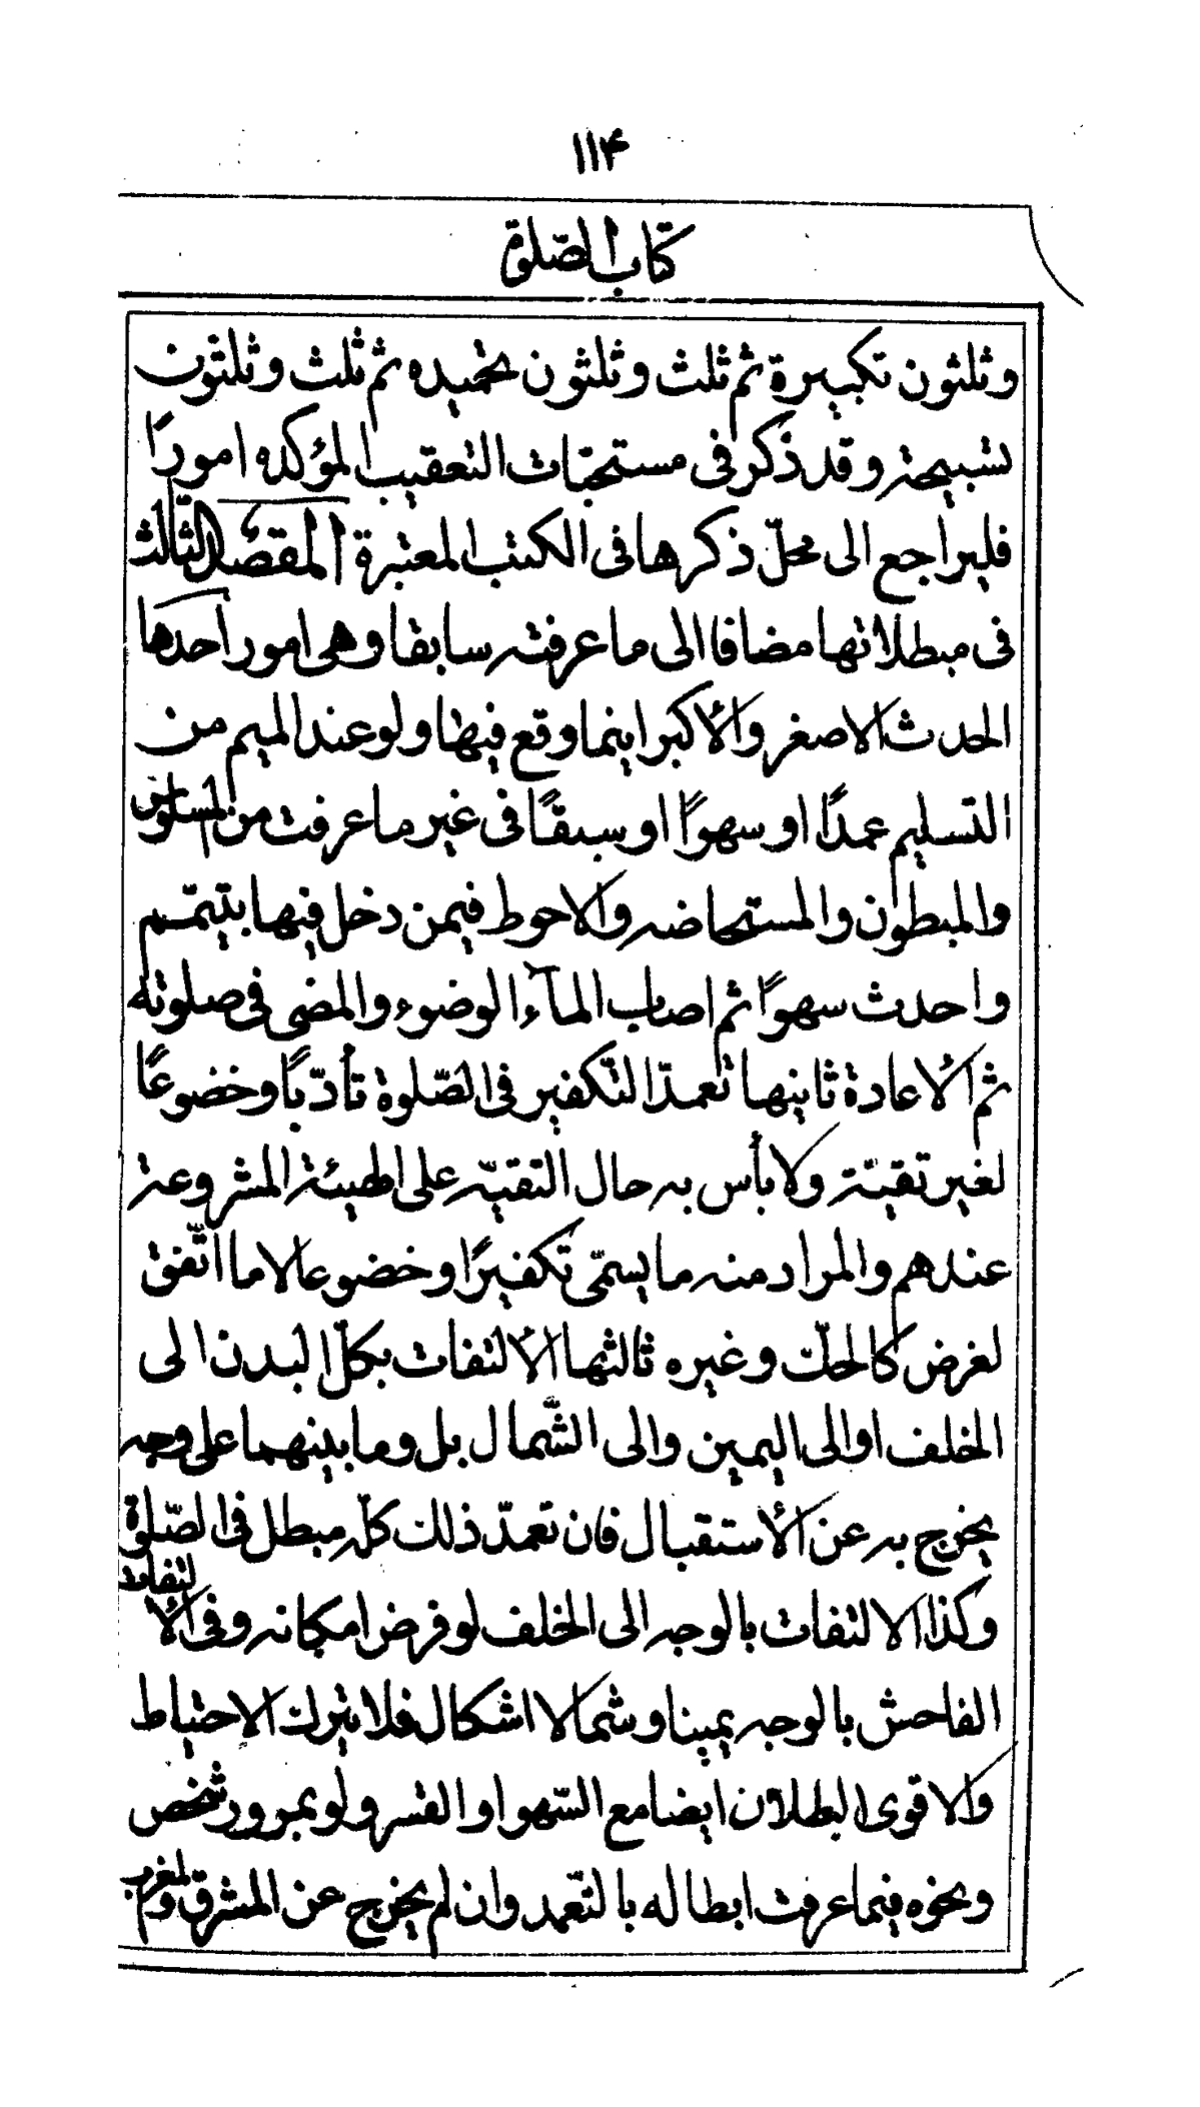 ۱۱۴
كتاب الصّلوة
وثلثون تكبيرة ثم ثلث وثلثون تحميده ثم ثلث وثلثون
تسبيحة وقد ذكر فى مستحبّات التعقيب المؤكده امورًا
فليراجع الى محلّ ذكرها فى الكتب المعتبرة المقصد الثّالث
فى مبطلاتها مضافا الى ما عرفته سابقا وهى امور احدها
الحدث الاصغر والأكبر اينما وقع فيها ولو عند الميم من
التسليم عمدًا او سهوًا او سبقًا فى غير ما عرفت من المسلوس
والمبطون والمستحاضه والاحوط فيمن دخل فيها بتيمّم
واحدث سهوًا ثم اصاب المآء الوضوء والمضى فى صلوته
ثم الأعادة ثانيها تعمدّ التّكفير فى الصّلوة تأدّبًا وخضوعًا
لغير تقيّة ولا بأس به حال التقيّه على الهيئة المشروعة
عندهم والمراد منه ما يسمّى تكفيرًا وخضوعا لا ما اتّفق
لغرض كالحكّ وغيره ثالثها الألتفات بكلّ البدن الى
الخلف او الى اليمين والى الشّمال بل وما بينهما على وجه
يخرج به عن الأستقبال فان تعمدّ ذلك كلّه مبطل فى الصّلوة
وكذا الالتفات بالوجه الى الخلف لو فرض امكانه وفى الألتفات
الفاحش بالوجه يمينا وشمالا اشكال فلا يترك الاحتياط
والاقوى البطلان ايضا مع السّهو او القسر ولو بمرور شخص
ونحوه فيما عرفت ابطاله بالتّعمد وان لم يخرج عن المشرق والمغرب